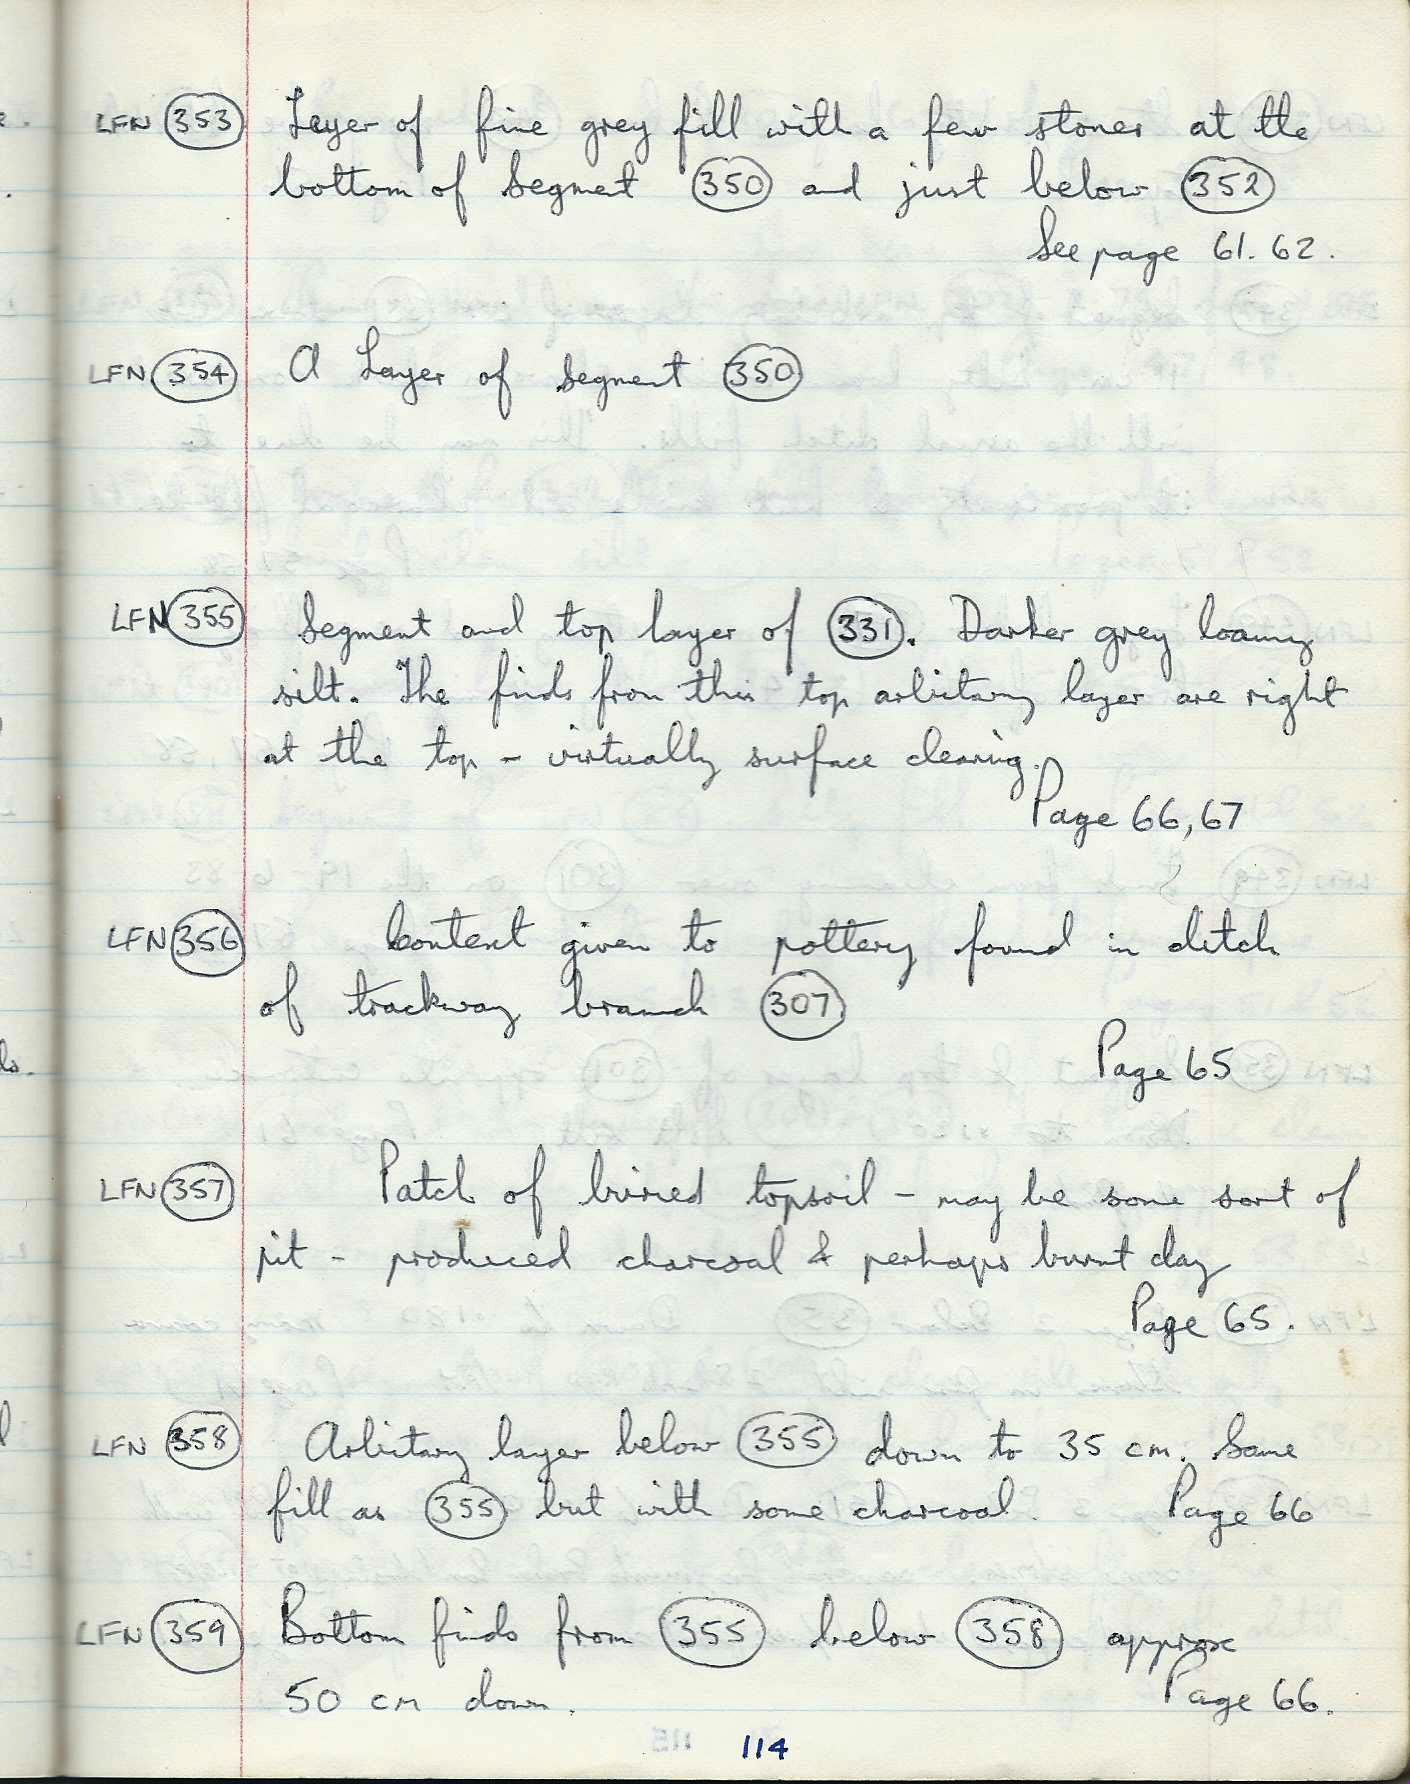 LFN 353 Layer of fine grey fill with a few stones at the
bottom of Segment 350 and just below 352
See page 61. 62.
LFN 354 A Layer of Segment 350
LFN 355 Segment and top layer of 331. Darker grey loamy
silt. The finds from this top arbitary layer are right
at the top - virtually surface cleaning.
Page 66, 67
LFN 356 Context given to pottery found in ditch
of trackway branch 307
Page 65
LFN 357 Patch of burried topsoil - may be some sort of
pit - produced charcoal & perhaps burnt clay
Page 65.
LFN 358 Arbitary layer below 355 down to 35 cm. Same
fill as 355 but with some charcoal. Page 66
LFN 359 Bottom finds from 355 below 358 approx
50 cm down. Page 66.
114